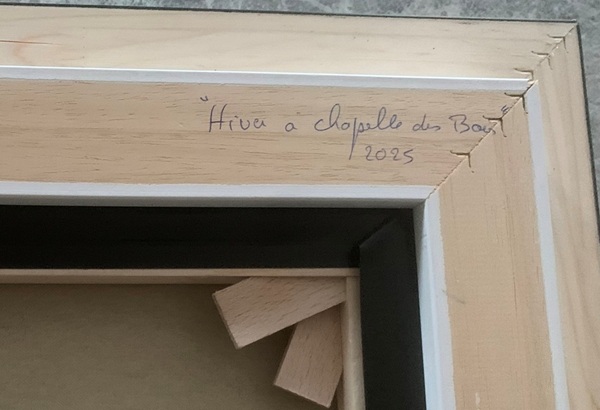 "Hiver à chapelle des Bois"
2025